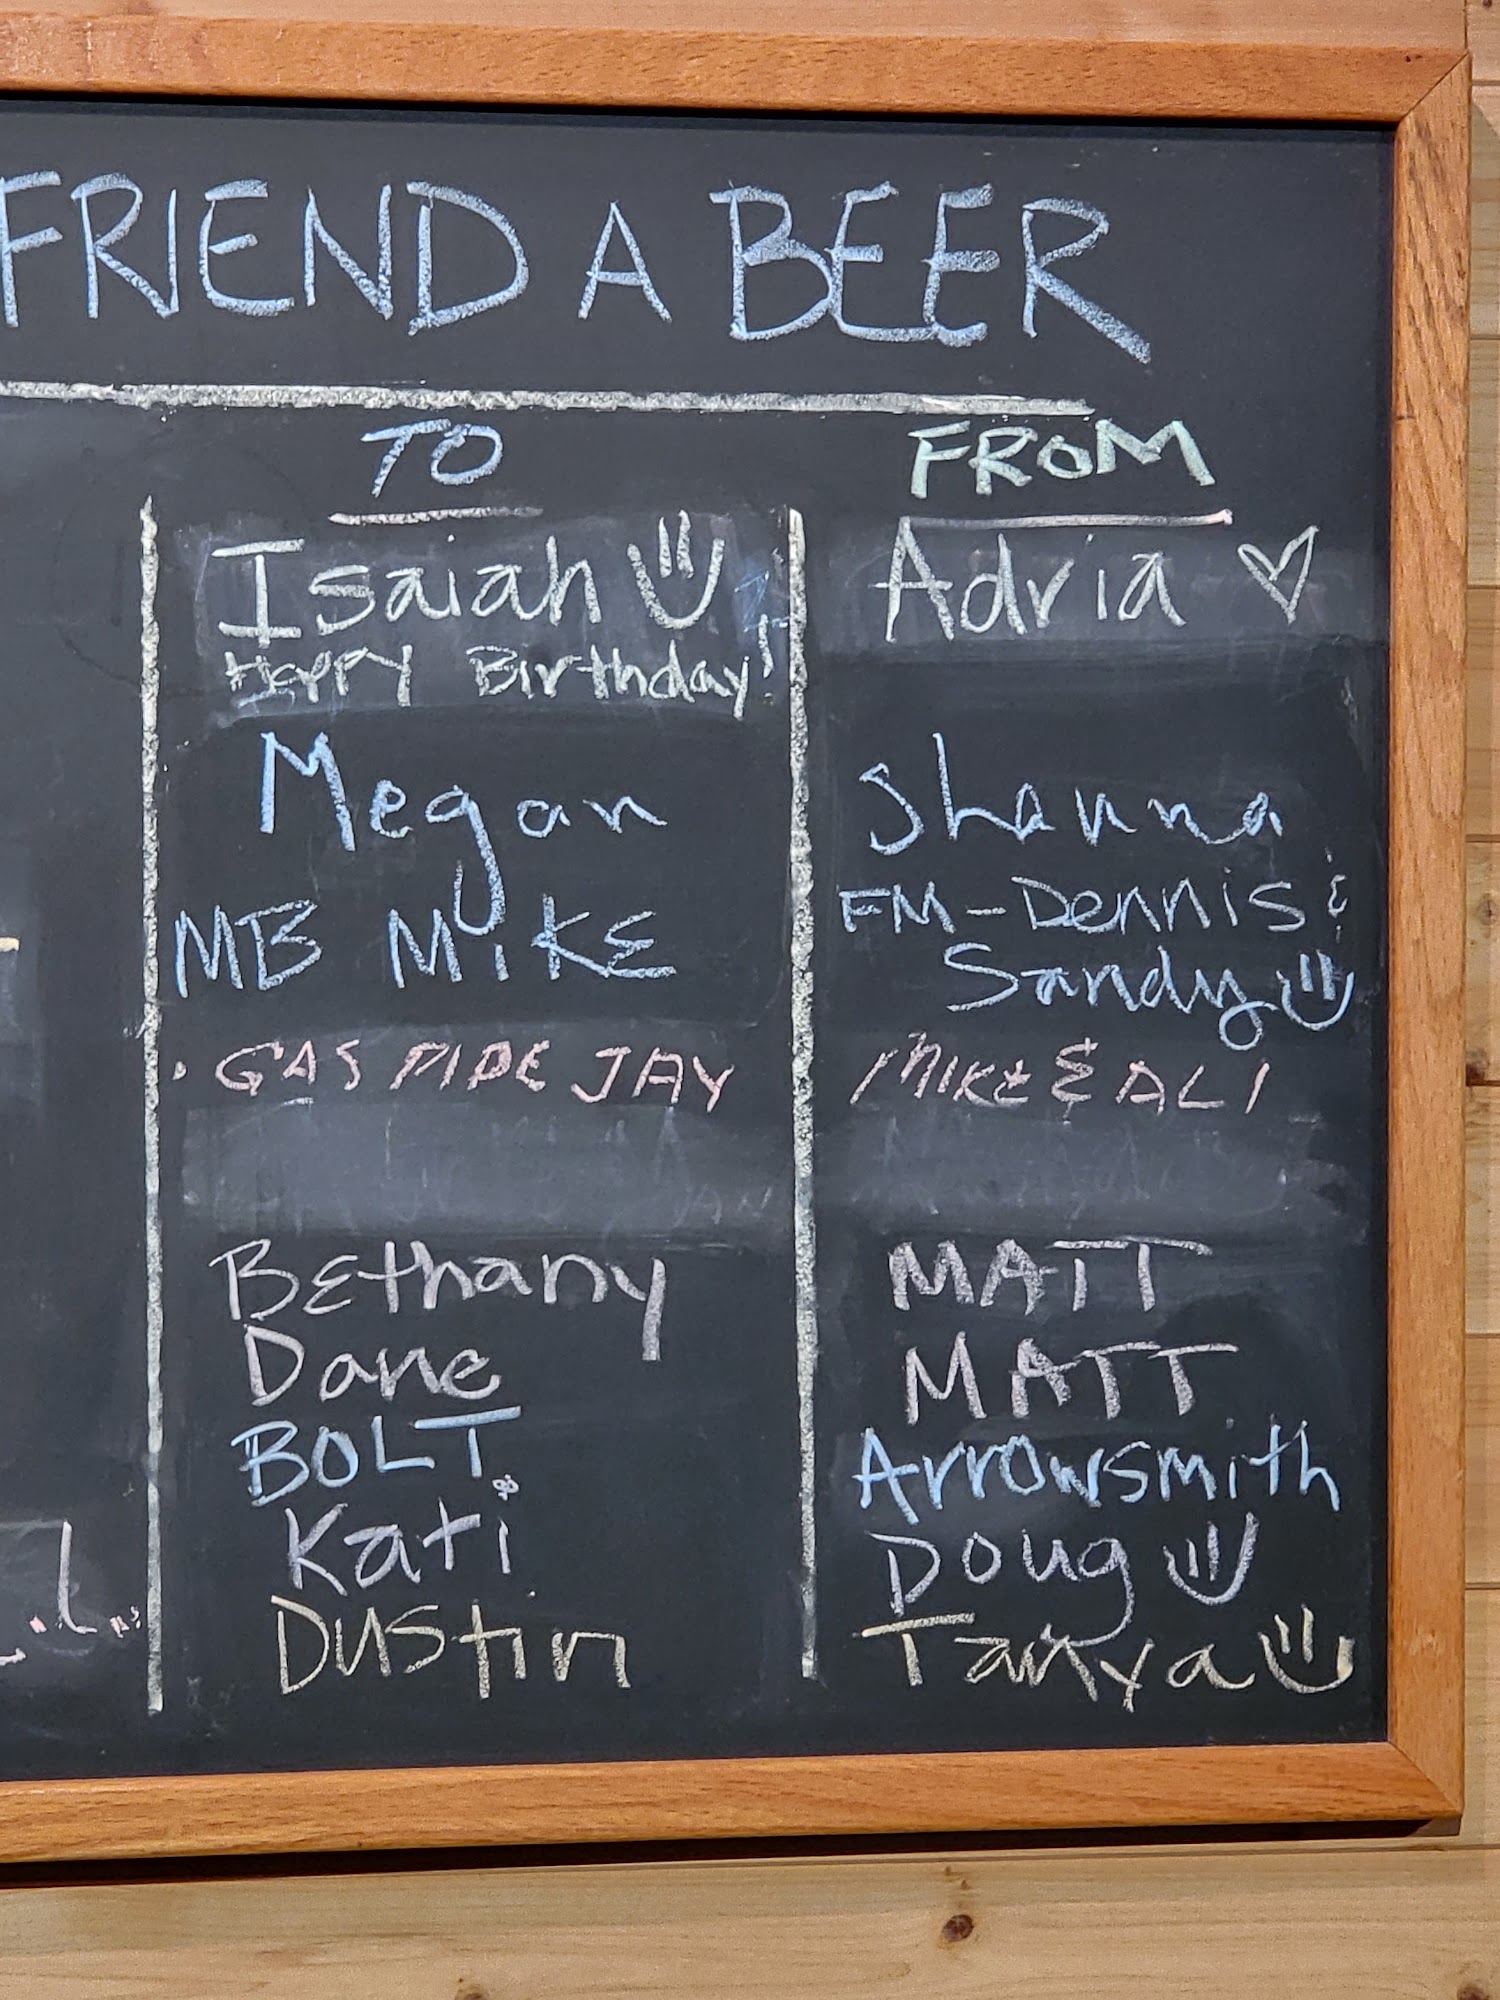 FRIEND A BEER
TO FROM
Isaiah Adria
Happy Birthday!
Megan Shauna
MB MIKE FM-Dennis &
Sandy
GAS PIPE JAY MIKE & ALI
Bethany MATT
Dane MATT
BOLT Arrowsmith
Kati Doug
Dustin Tanya